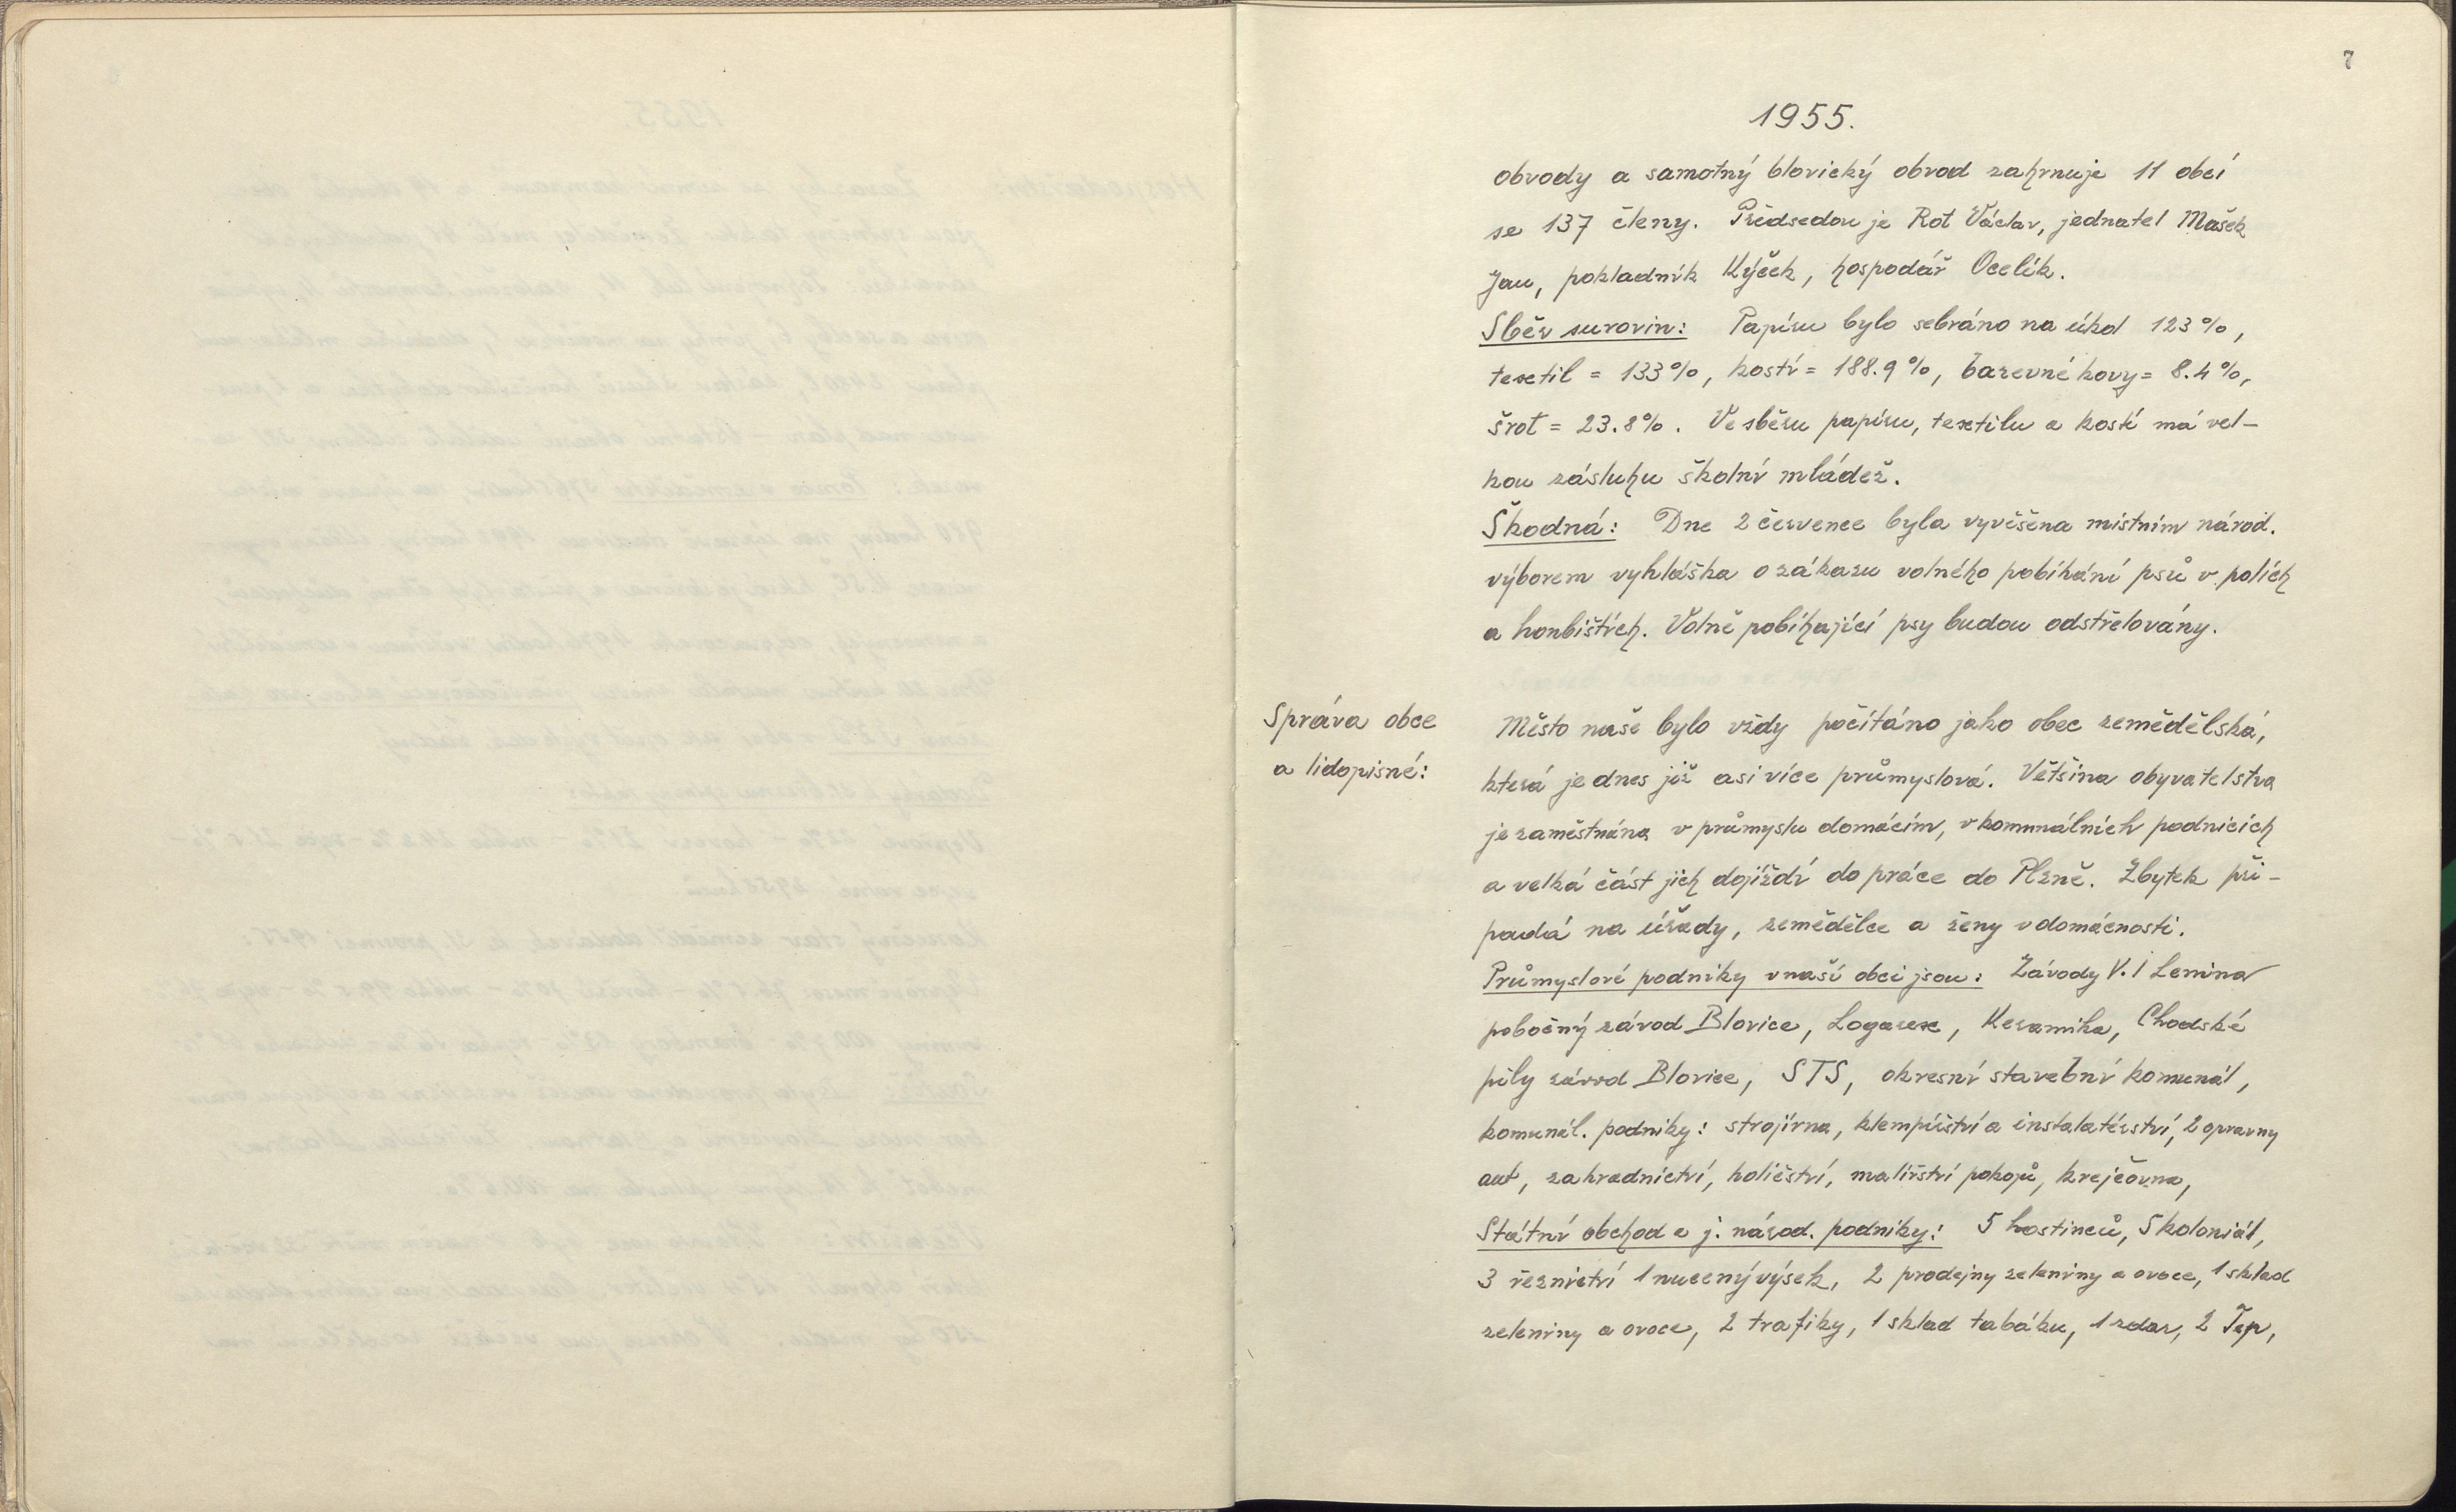 7
1955.
obvody a samotný blovický obvod zahrnuje 11 obcí
se 137 členy. Předsedou je Rot Václav, jednatel Mašek
Jan, pokladník Kýček, hospodář Ocelík.
Sběr surovin: Papíru bylo sebráno na úkol 123%,
textil = 133%, kostí = 188.9%, barevné kovy = 8.4%,
šrot = 23.8%. Ve sběru papíru, textilu a kostí má vel-
kou zásluhu školní mládež.
Škodná: Dne 2 července byla vyvěšena místním národ.
výborem vyhláška o zákazu volného pobíhání psů v polích
a honbištích. Volně pobíhající psy budou odstřelovány.
Správa obce
a lidopisné:
Město naše bylo vždy počítáno jako obec zemědělská,
která je dnes již asi více průmyslová. Většina obyvatelstva
je zaměstnána v průmyslu domácím, v komunálních podnicích
a velká část jich dojíždí do práce do Plzně. Zbytek při-
padá na úřady, zemědělce a ženy v domácnosti.
Průmyslové podniky v naší obci jsou: Závody V. I Lenina
pobočný závod Blovice, Logarex, Keramika, Chodské
pily závod Blovice, STS, okresní stavební komunál,
komunál. podniky: strojírna, klempířství a instalatérství, 2 opravny
aut, zahradnictví, holičství, malířství pokojů, krejčovna,
Státní obchod a j. národ. podniky: 5 hostinců, 5 koloniál,
3 řeznictví 1 nucený výsek, 2 prodejny zeleniny a ovoce, 1 sklad
zeleniny a ovoce, 2 trafiky, 1 sklad tabáku, 1 zdar, 2 Tep,